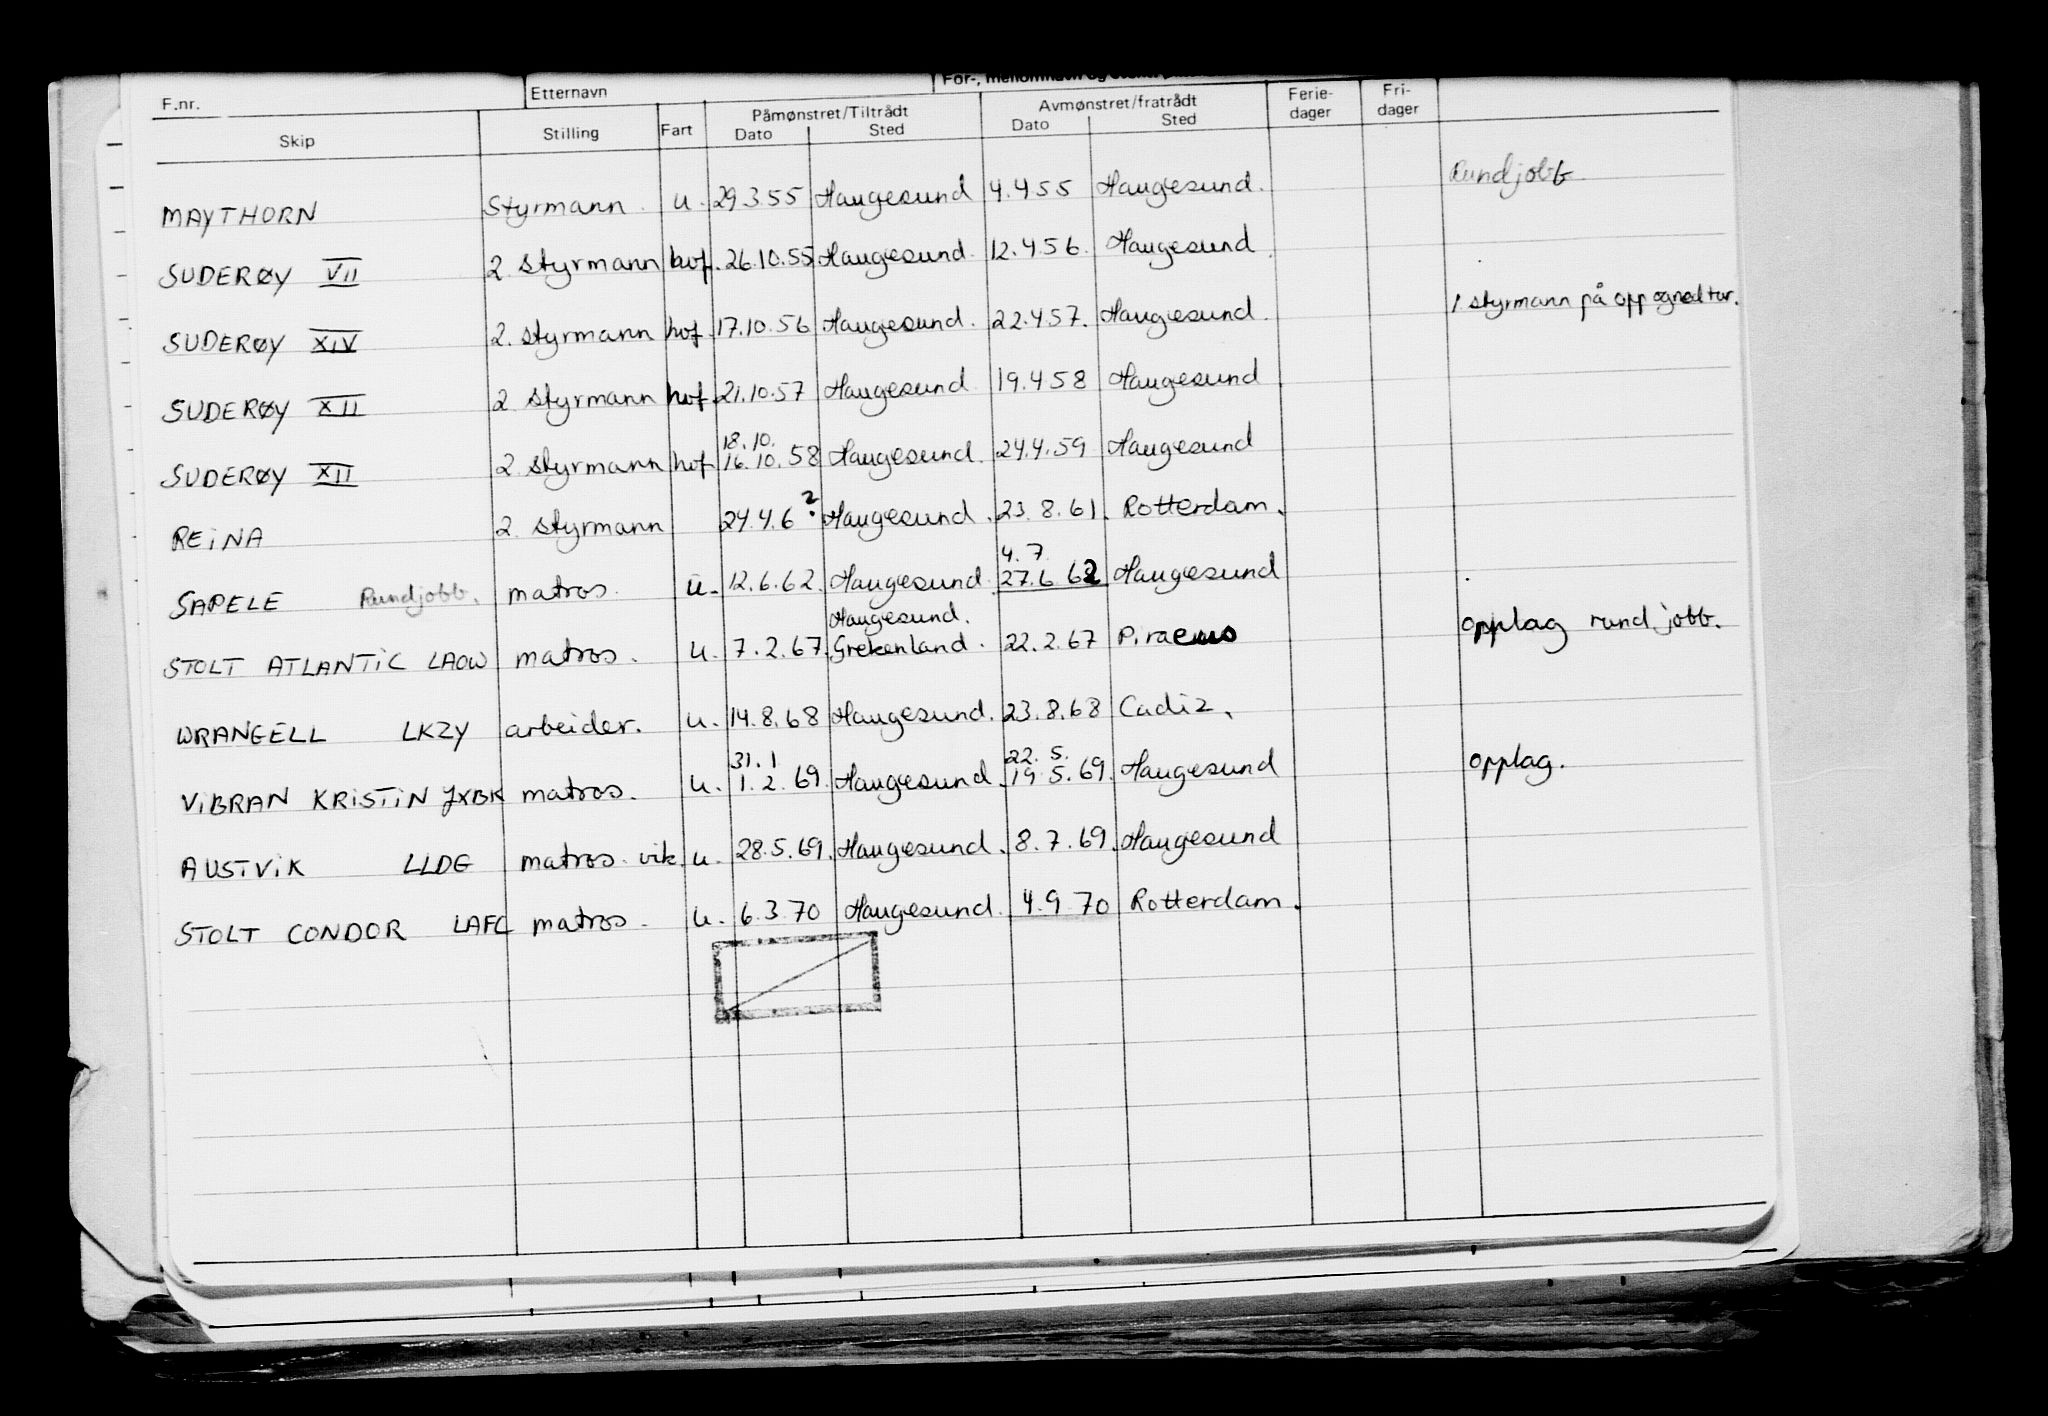 F.nr. Etternavn
Skip Stilling Fart Påmønstret/Tiltrådt Dato Sted Avmønstret/fratrådt Dato Sted Ferie-dager Fri-dager
MAYTHORN Styrmann. u. 29.3.55 Haugesund 4.4.55 Haugesund. Rundjobb.
SUDERØY VII 2. styrmann hvf. 26.10.55 Haugesund. 12.4.56. Haugesund.
SUDERØY XIV 2. styrmann hvf. 17.10.56 Haugesund. 22.4.57. Haugesund. 1 styrmann på opp og ned tur.
SUDERØY XII 2 styrmann hvf. 21.10.57 Haugesund. 19.4.58 Haugesund
18.10.
SUDERØY XII 2. styrmann hvf 16.10.58 Haugesund. 24.4.59 Haugesund
REINA 2. styrmann 24.4.6? Haugesund. 23.8.61. Rotterdam.
4.7.
SAPELE Rundjobb. matros. u. 12.6.62. Haugesund. 27.6.62 Haugesund
Haugesund.
STOLT ATLANTIC LAOW matros. u. 7.2.67. Grekenland. 22.2.67 Piraeus opplag rund.jobb.
WRANGELL LKZY arbeider. u. 14.8.68 Haugesund. 23.8.68 Cadiz.
31.1 22.5.
VIBRAN KRISTIN JXBK matros. u. 1.2.69. Haugesund. 19.5.69. Haugesund opplag.
AUSTVIK LLDG matros. vik. u. 28.5.69. Haugesund. 8.7.69. Haugesund
STOLT CONDOR LAFC matros. u. 6.3.70 Haugesund. 4.9.70 Rotterdam.